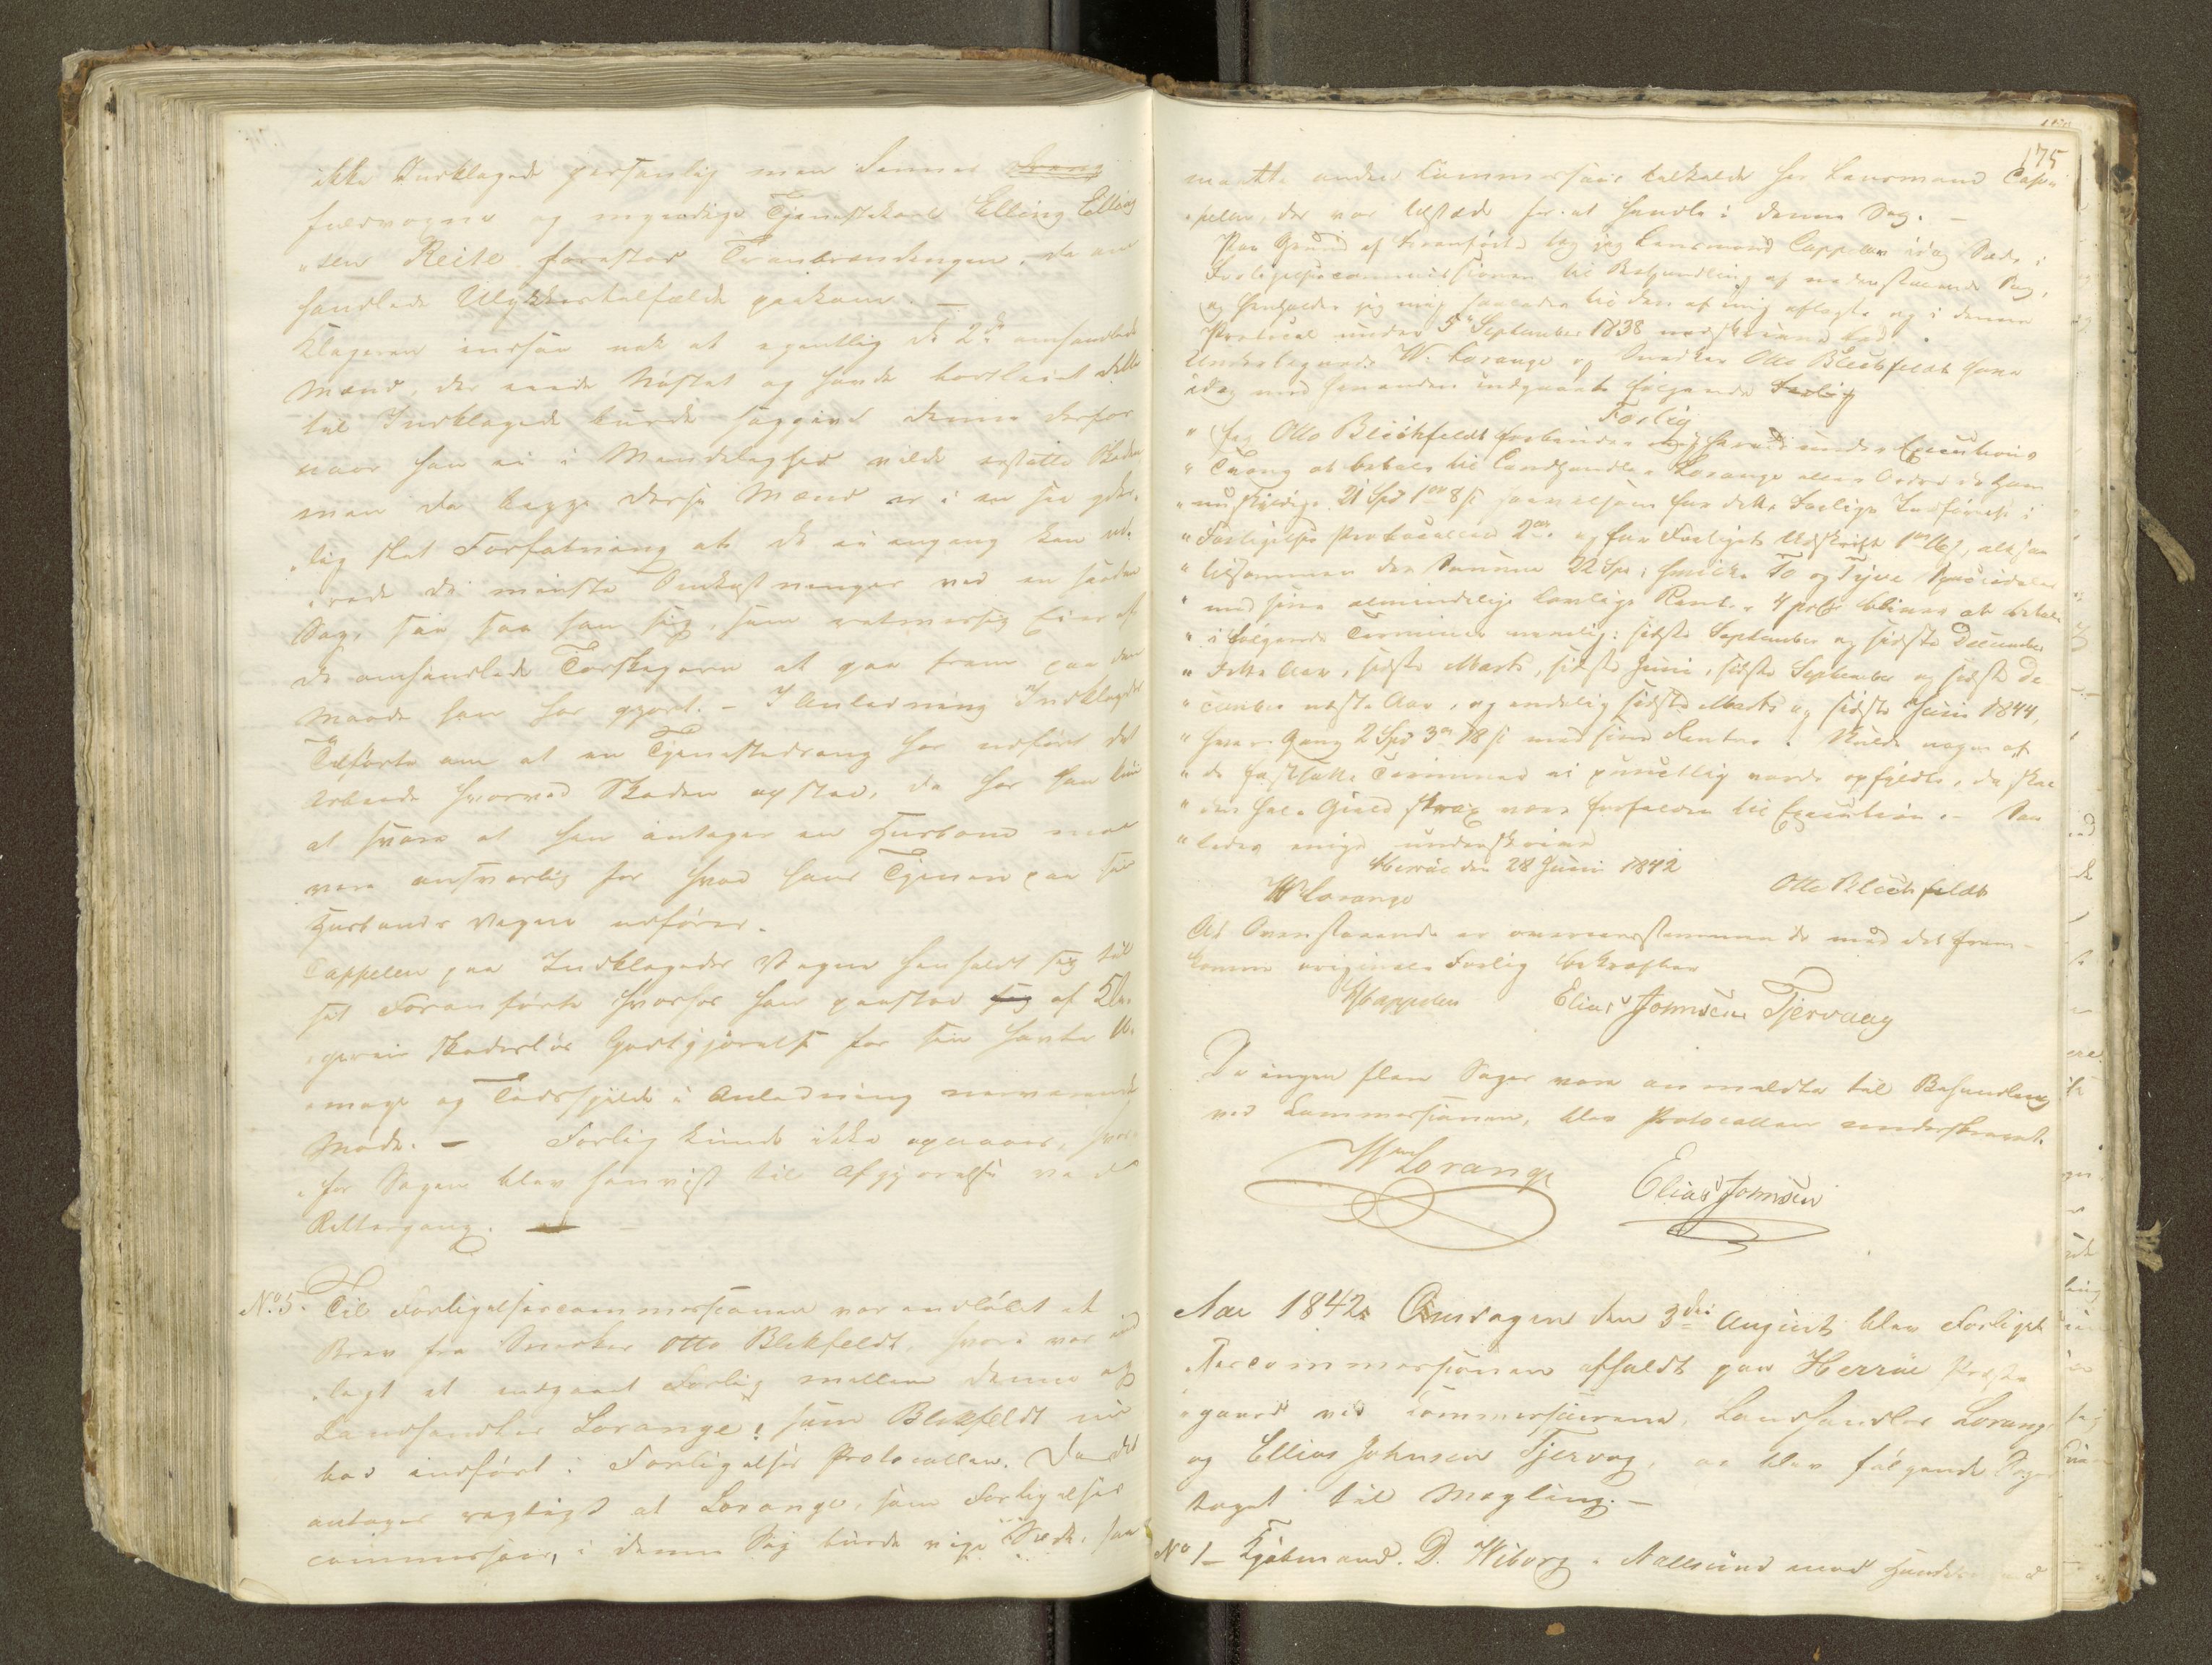 ikke Indklagede personlig men dennes Dreng
fuldvoxne og myndige Tjenestekarl Elling Elling
"sen Reite forestod Tranbrændingen, da om
handlede Ulykkestilfælde paakom. —
Klageren indsaa nok at egentlig de 2de omhandlede
Mænd, der eiede Nøstet og havde bortleiet dette
til Indklagede burde søgges denne derfor
naar han ei i Mindelighed vilde erstatte Skaden
men da begge disse Mænd er i en saa yder"
"lig slet Forfatning at de ei engang kan ud"
"rede de mindste Omkostninger ved en saadan
Sag, saa saa han sig, som retmæssig Eier af
de omhandlede Torskegarn at gaa frem paa den
Maade han har gjort. — I Anledning Indklagedes
Tilførte om at en Tjenestedreng har udført det
Arbeide hvorved Skaden opstod, da har han kun
at svare at han antager en Husbond maa
være ansvarlig for hvad hans Tjenere paa sin
Husbonds Vegne udfører.
Cappelen paa Indklagedes Vegne henholdt sig til
sit Foranførte hvorfor han paastod sig af Kla"
"geren skadesløs Godtgjørelse for sin havte U"
"mage og Tidsspilde i Anledning nærværende
Møde. — Forlig kunde ikke opnaaes, hvor"
"for Sagen blev henvist til Afgjørelse ved
Rettergang. —
No 5. Til Forligelsescommissionen var indløbet et
Brev fra Snedker Otto Blekfeldt, hvori var ind
"lagt et indgaaet Forlig mellem denne og
Landhandler Lorange, som Blekfeldt nu
bad indført i Forligelses Protocollen. Da det
antages rigtigst at Lorange, som Forligelses
commissær, i denne Sag burde vige Sæde, saa
175
maatte anden Commissair tilkalde hr Lensmand Cap"
"pelen, der var tilstede for at handle i denne Sag. —
Paa Grund af Foranførte tog jeg Lensmand Cappelen idag Sæde i
Forligelsescommissionen til Behandling af nedenstaaende Sag,
og henholder jeg mig saaledes til den af mig aflagte og i denne
Protocol under 5te September 1838 nedskrevne Eed.
Undertegnede W. Lorange og Snedker Otto Bleckfeldt have
idag med hinanden indgaaet følgende Forlig
Forlig
" Jeg Otto Blickfeldt forbinder mig herved under Executions
" Tvang at betale til Landhandler Lorange eller Ordre de ham
" nuskyldige 21 Spd 1 ort 8 s saavelsom for dette Forligs Indførsel i
" Forligelses Protocollen 2 ort og for Forligets Udskrift 1 ort 16 s, altsaa
" tilsammen den Summa 22 Spd: hvilke To og Tyve Speciedaler
" med sine almindelige lovlige Renter 4 prCt bliver at betale
" i følgende Terminer nemlig: sidste September og sidste December
" dette Aar, sidste Marts, sidste Juni, sidste September og sidste De
" cember næste Aar, og endelig sidste Marts og sidste Juni 1844,
" hver Gang 2 Spd 3 ort 18 s med sine Renter. Skulde nogen af
" de fastsatte Terminer ei punctlig vorde opfyldte, da skal
" den hele Gjeld strax være forfalden til Execution. — Saa
" ledes enige underskrives
Herrøe den 28 Juni 1842
W Lorange Otto Bleckfeldt
At Ovenstaaende er overeensstemmende med det frem-
komne originale Forlig bekræftes
Cappelen Elias Jonnsen Tjervaag
Da ingen flere Sager vare anmeldte til Behandling
ved Commissionen, blev Protocollen underskrevet.
Wm Lorange Elias Jonnsen
Aar 1842. Onsdagen den 3die August blev Forligel
sescommissionen afholdt paa Herrøe Præste
"gaard ved Commissairerne, Landhandler Lorange
og Ellias Johnsen Tjervog, og blev følgende Sager
taget til Megling. —
No 1 — Kjøbmand D. Wiborg i Vallsund mod